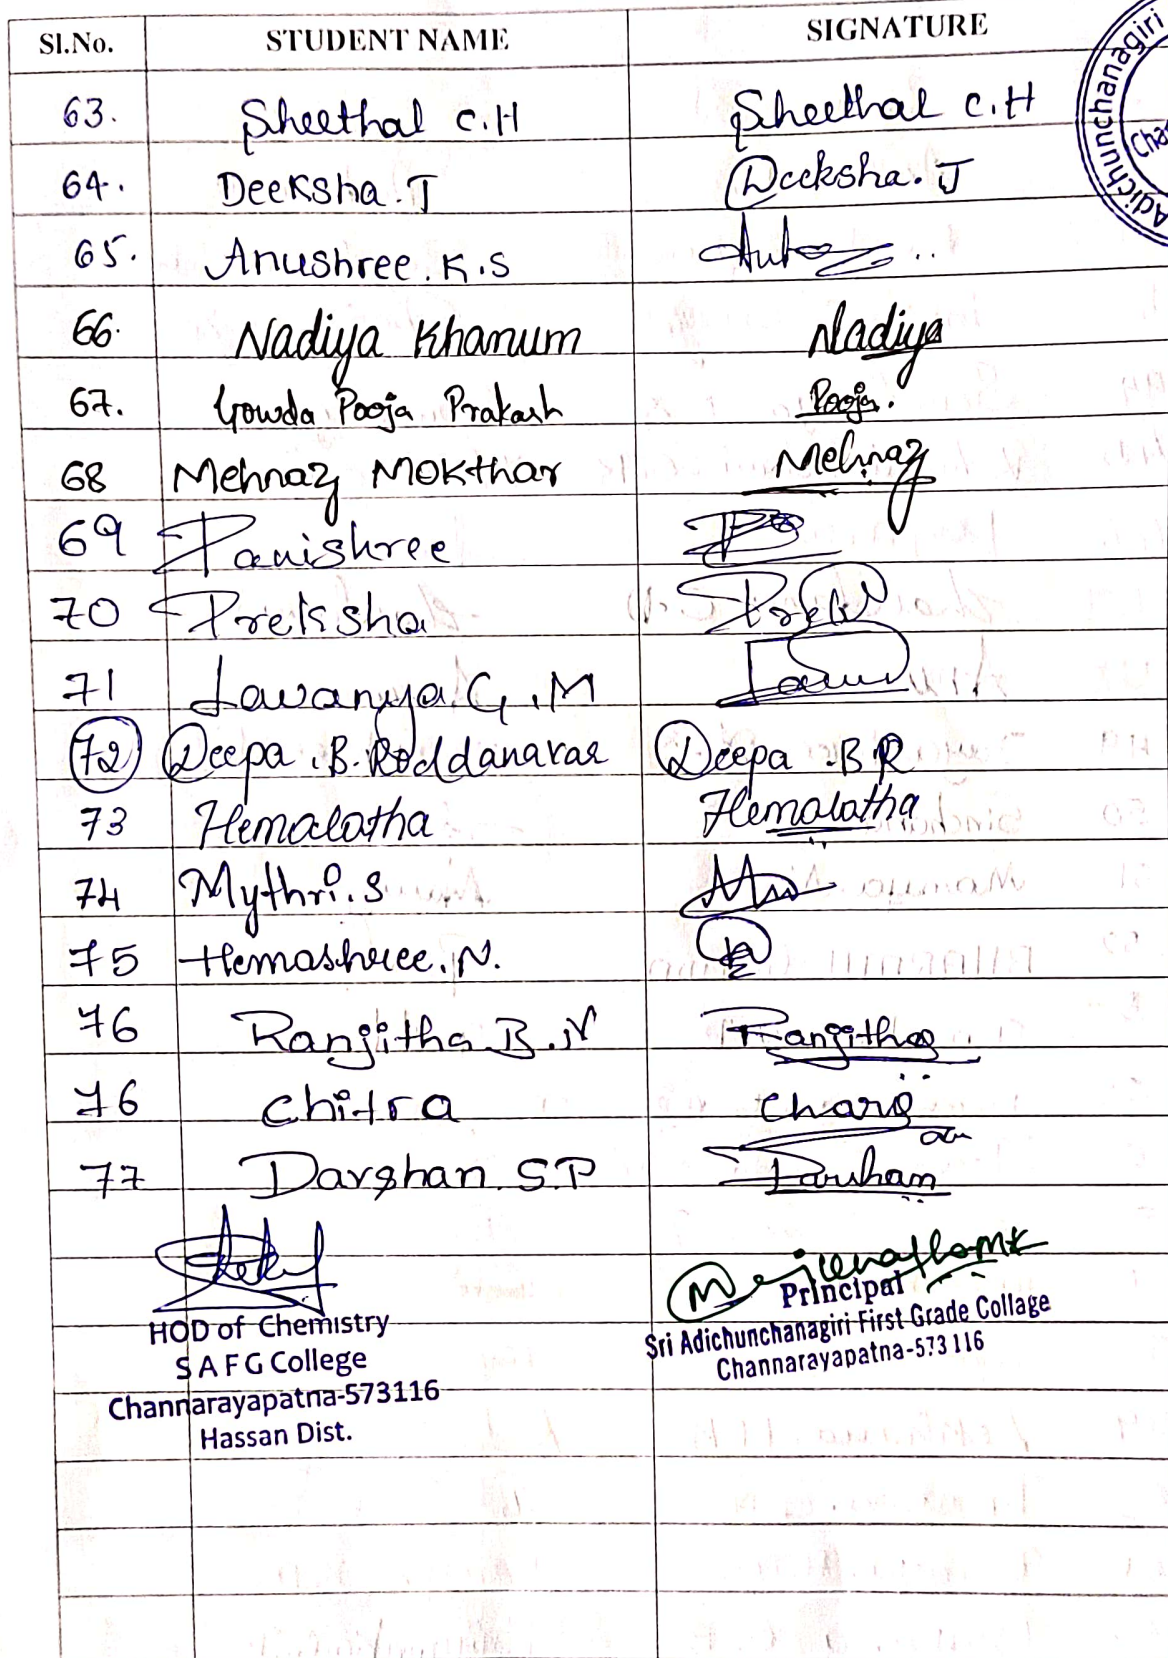 Sl.No. STUDENT NAME SIGNATURE
63. Sheethal C.H Sheethal C.H
64. Deeksha.J Deeksha.J
65. Anushree.K.S
66. Nadiya Khanum Nadiya
67. Gowda Pooja Prakash Pooja.
68 Mehnaz Mokthar Mehnaz
69 Panishree
70 Preksha
71 Lavanya.G.M
72 Deepa.B.Roddanavar Deepa.B R
73 Hemalatha Hemalatha
74 Mythri.S
75 Hemashree.N.
76 Ranjitha B.N Ranjitha
76 Chitra
77 Darshan.S.P
HOD of Chemistry
S A F G College
Channarayapatna-573116
Hassan Dist.
Principal
Sri Adichunchanagiri First Grade Collage
Channarayapatna-573 116
Adichunchanagiri